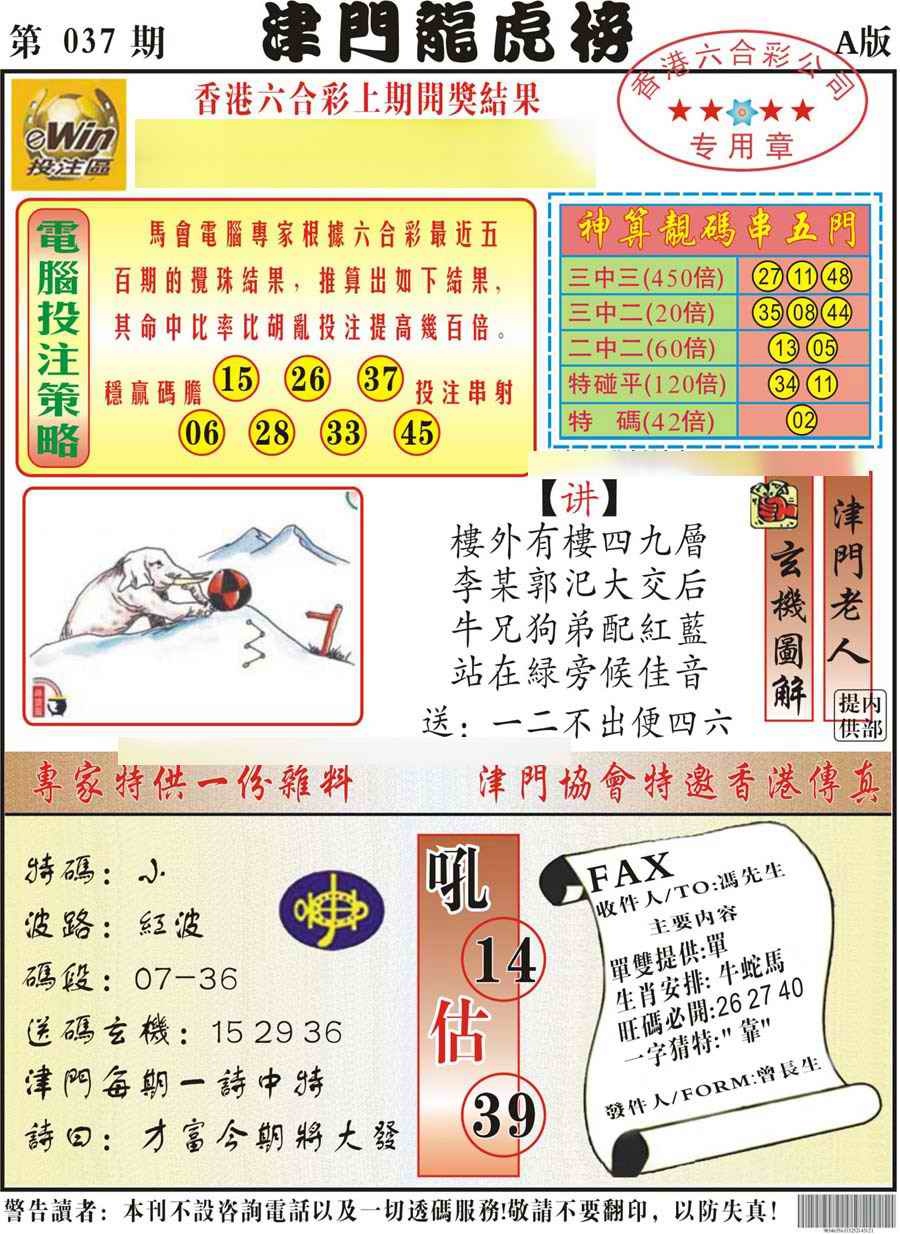 第 037 期
津門龍虎榜
A版
eWin
投注區
香港六合彩上期開獎結果
香港六合彩公司
专用章
電腦投注策略
馬會電腦專家根據六合彩最近五
百期的攪珠結果，推算出如下結果，
其命中比率比胡亂投注提高幾百倍。
穩贏碼膽 15 26 37 投注串射
06 28 33 45
神算靚碼串五門
三中三(450倍) 27 11 48
三中二(20倍) 35 08 44
二中二(60倍) 13 05
特碰平(120倍) 34 11
特 碼(42倍) 02
【讲】
樓外有樓四九層
李某郭汜大交后
牛兄狗弟配紅藍
站在緑旁候佳音
送：一二不出便四六
玄機圖解
津門老人
内部提供
專家特供一份雜料
津門協會特邀香港傳真
特碼：小
波路：紅波
碼段：07-36
送碼玄機：15 29 36
津門每期一詩中特
詩曰：才富今期將大發
吼
14
估
39
FAX
收件人/TO:馮先生
主要内容
單雙提供:單
生肖安排: 牛蛇馬
旺碼必開:26 27 40
一字猜特:"靠"
發件人/FORM:曾長生
警告讀者：本刊不設咨詢電話以及一切透碼服務!敬請不要翻印，以防失真!